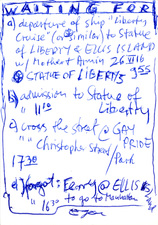 WAITING FOR
a) departure of ship "Liberty
Cruise" (or similar) to Statue
of LIBERTY & ELLIS ISLAND
w/ Mother & Armin 26 VI 16
@ STATUE OF LIBERTY 9:55
b) admission to Statue of
" 11:10 Liberty
c) cross the street @ GAY
" Christopher Street / PRIDE
17:30 Park
d) Forgot: Ferry @ ELLIS IS
" 16:30 to go to Manhattan